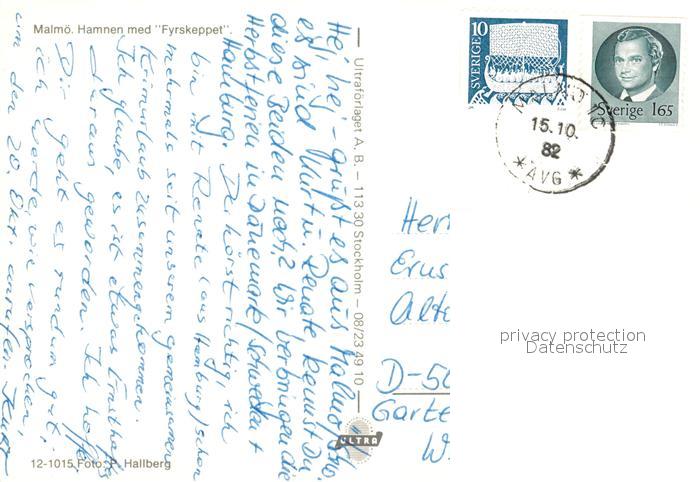 Malmö. Hamnen med "Fyrskeppet"
Hej, hej - grüßt es aus Malmö
es sind Kurt u. Renate kennst Du
diese Beiden noch? Wir verbringen die
Herbstferien in Dänemark/Schweden +
Hamburg. Du hörst richtig, ich
bin mit Renate (aus Hamburg) schon
mehrmals seit unserem gemeinsamen
zusammengekommen.
Ich glaube, es ist etwas Ernsthaftes
daraus geworden. Ich hoffe,
Dir geht es rundum gut,
ich werde, wie versprochen,
um den 20. Okt. anrufen. Kurt
Ultraförlaget A. B. – 113 30 Stockholm – 08/23 49 10
ULTRA
12-1015 Foto: P. Hallberg
SVERIGE 10
Sverige 165
15.10.
82
* AVG *
Herr
Erns
Alte
D-50
Garte
W
privacy protection
Datenschutz